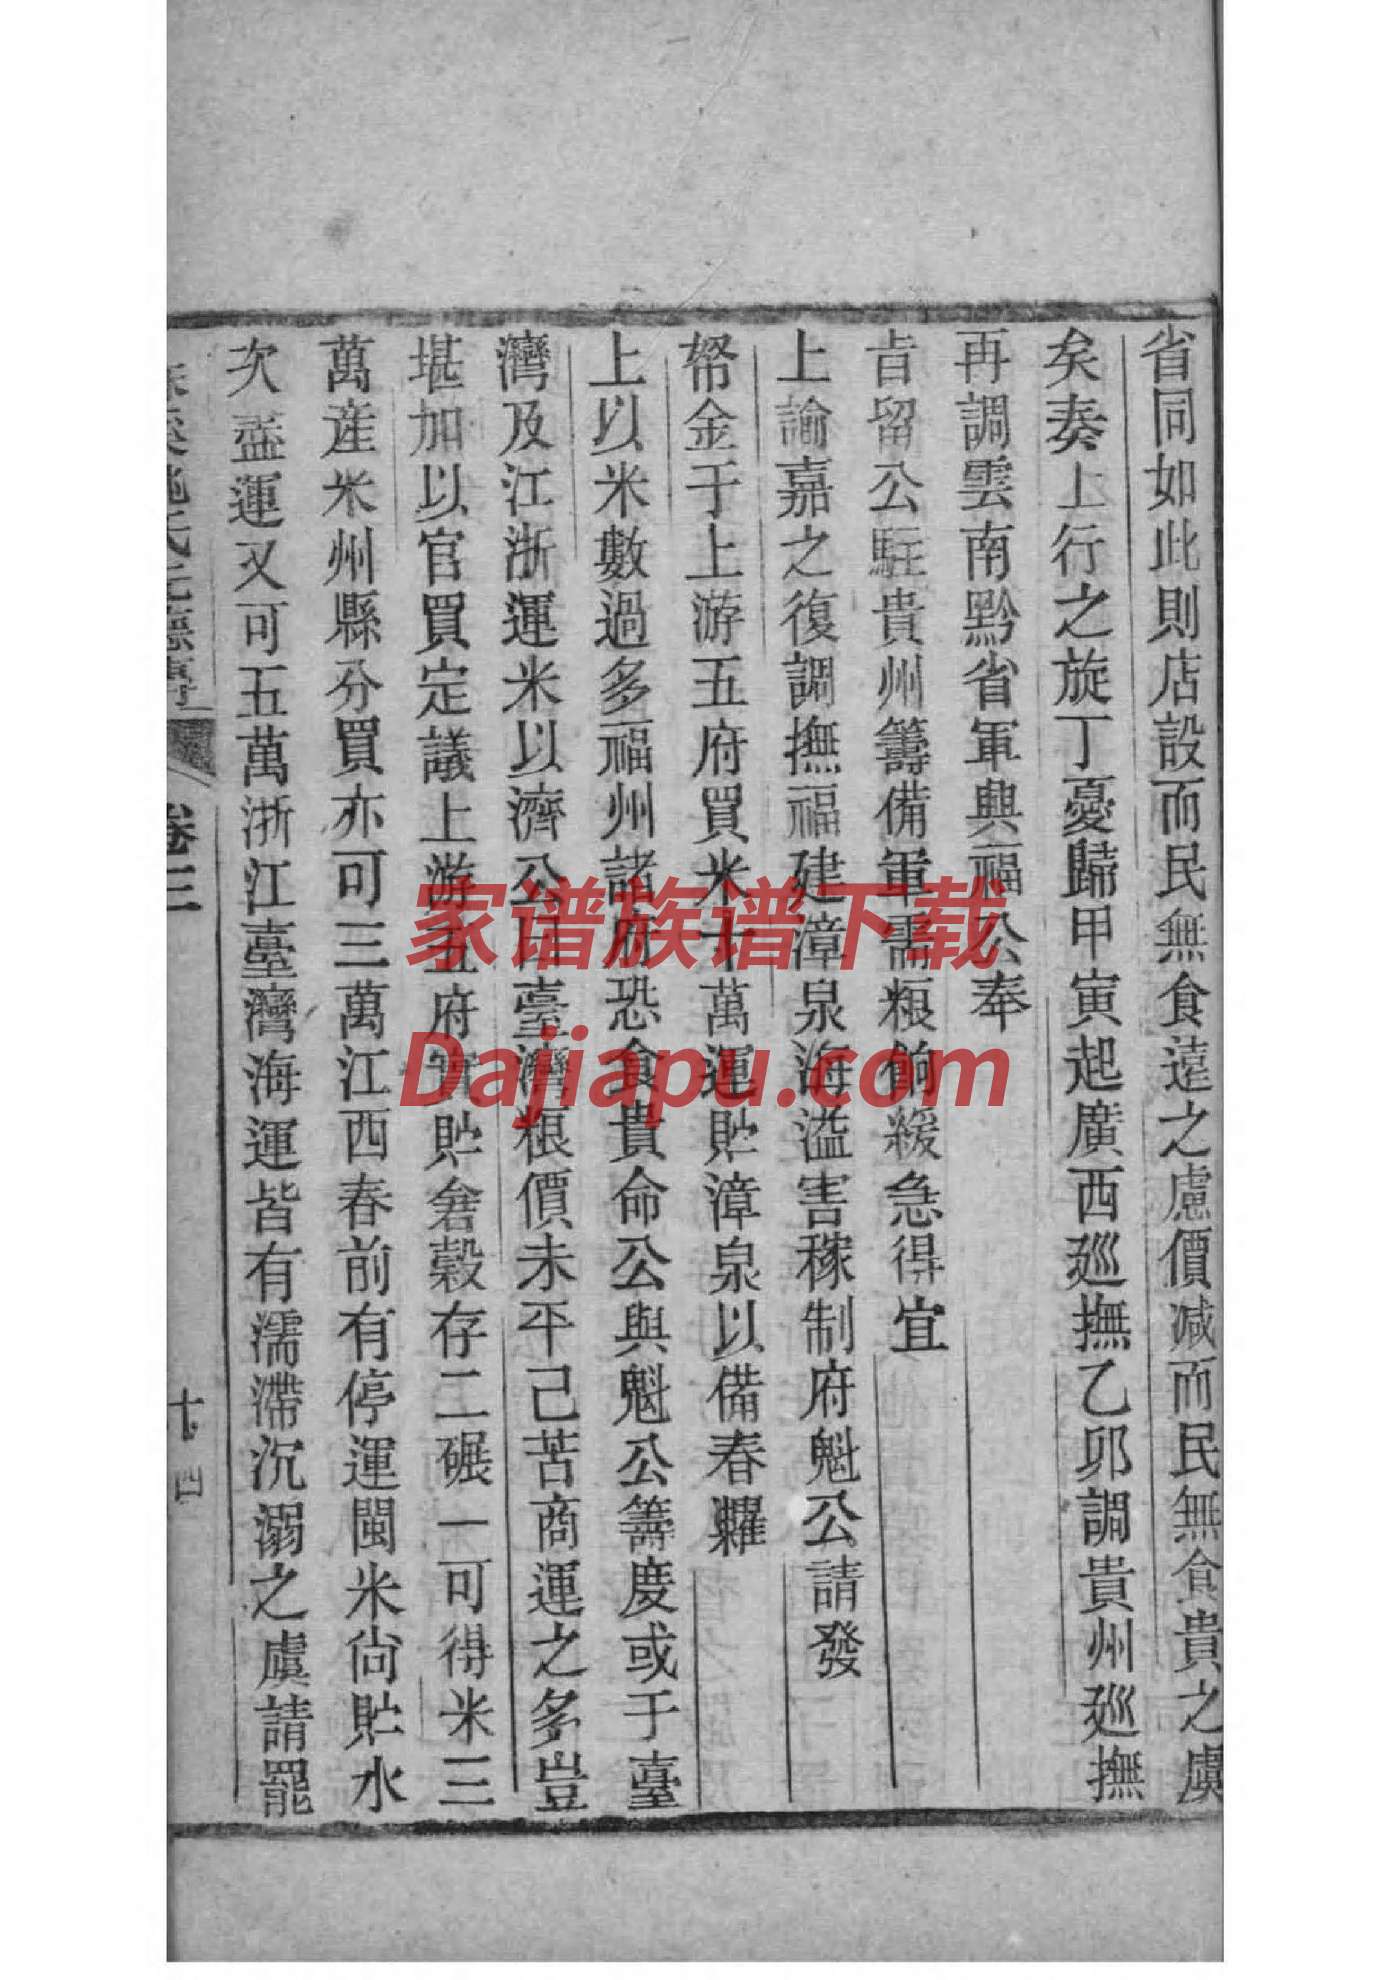 省同如此則店設而民無食遠之慮價減而民無食貴之虞
矣奏上行之旋丁憂歸甲寅起廣西廵撫乙卯調貴州廵撫
再調雲南黔省軍興福公奉
旨留公駐貴州籌備軍需粮餉緩急得宜
上諭嘉之復調撫福建漳泉海溢害稼制府魁公請發
帑金于上游五府買米十萬運貯漳泉以備春糶
上以米數過多福州諸府恐食貴命公與魁公籌度或于臺
灣及江浙運米以濟公曰臺灣粮價未平已苦商運之多豈
堪加以官買定議上游五府官貯倉穀存二碾一可得米三
萬産米州縣分買亦可三萬江西春前有停運閩米尙貯水
次盡運又可五萬浙江臺灣海運皆有濡滯沉溺之虞請罷
氏先德傳
卷三
十四
家谱族谱下载
Dajiapu.com